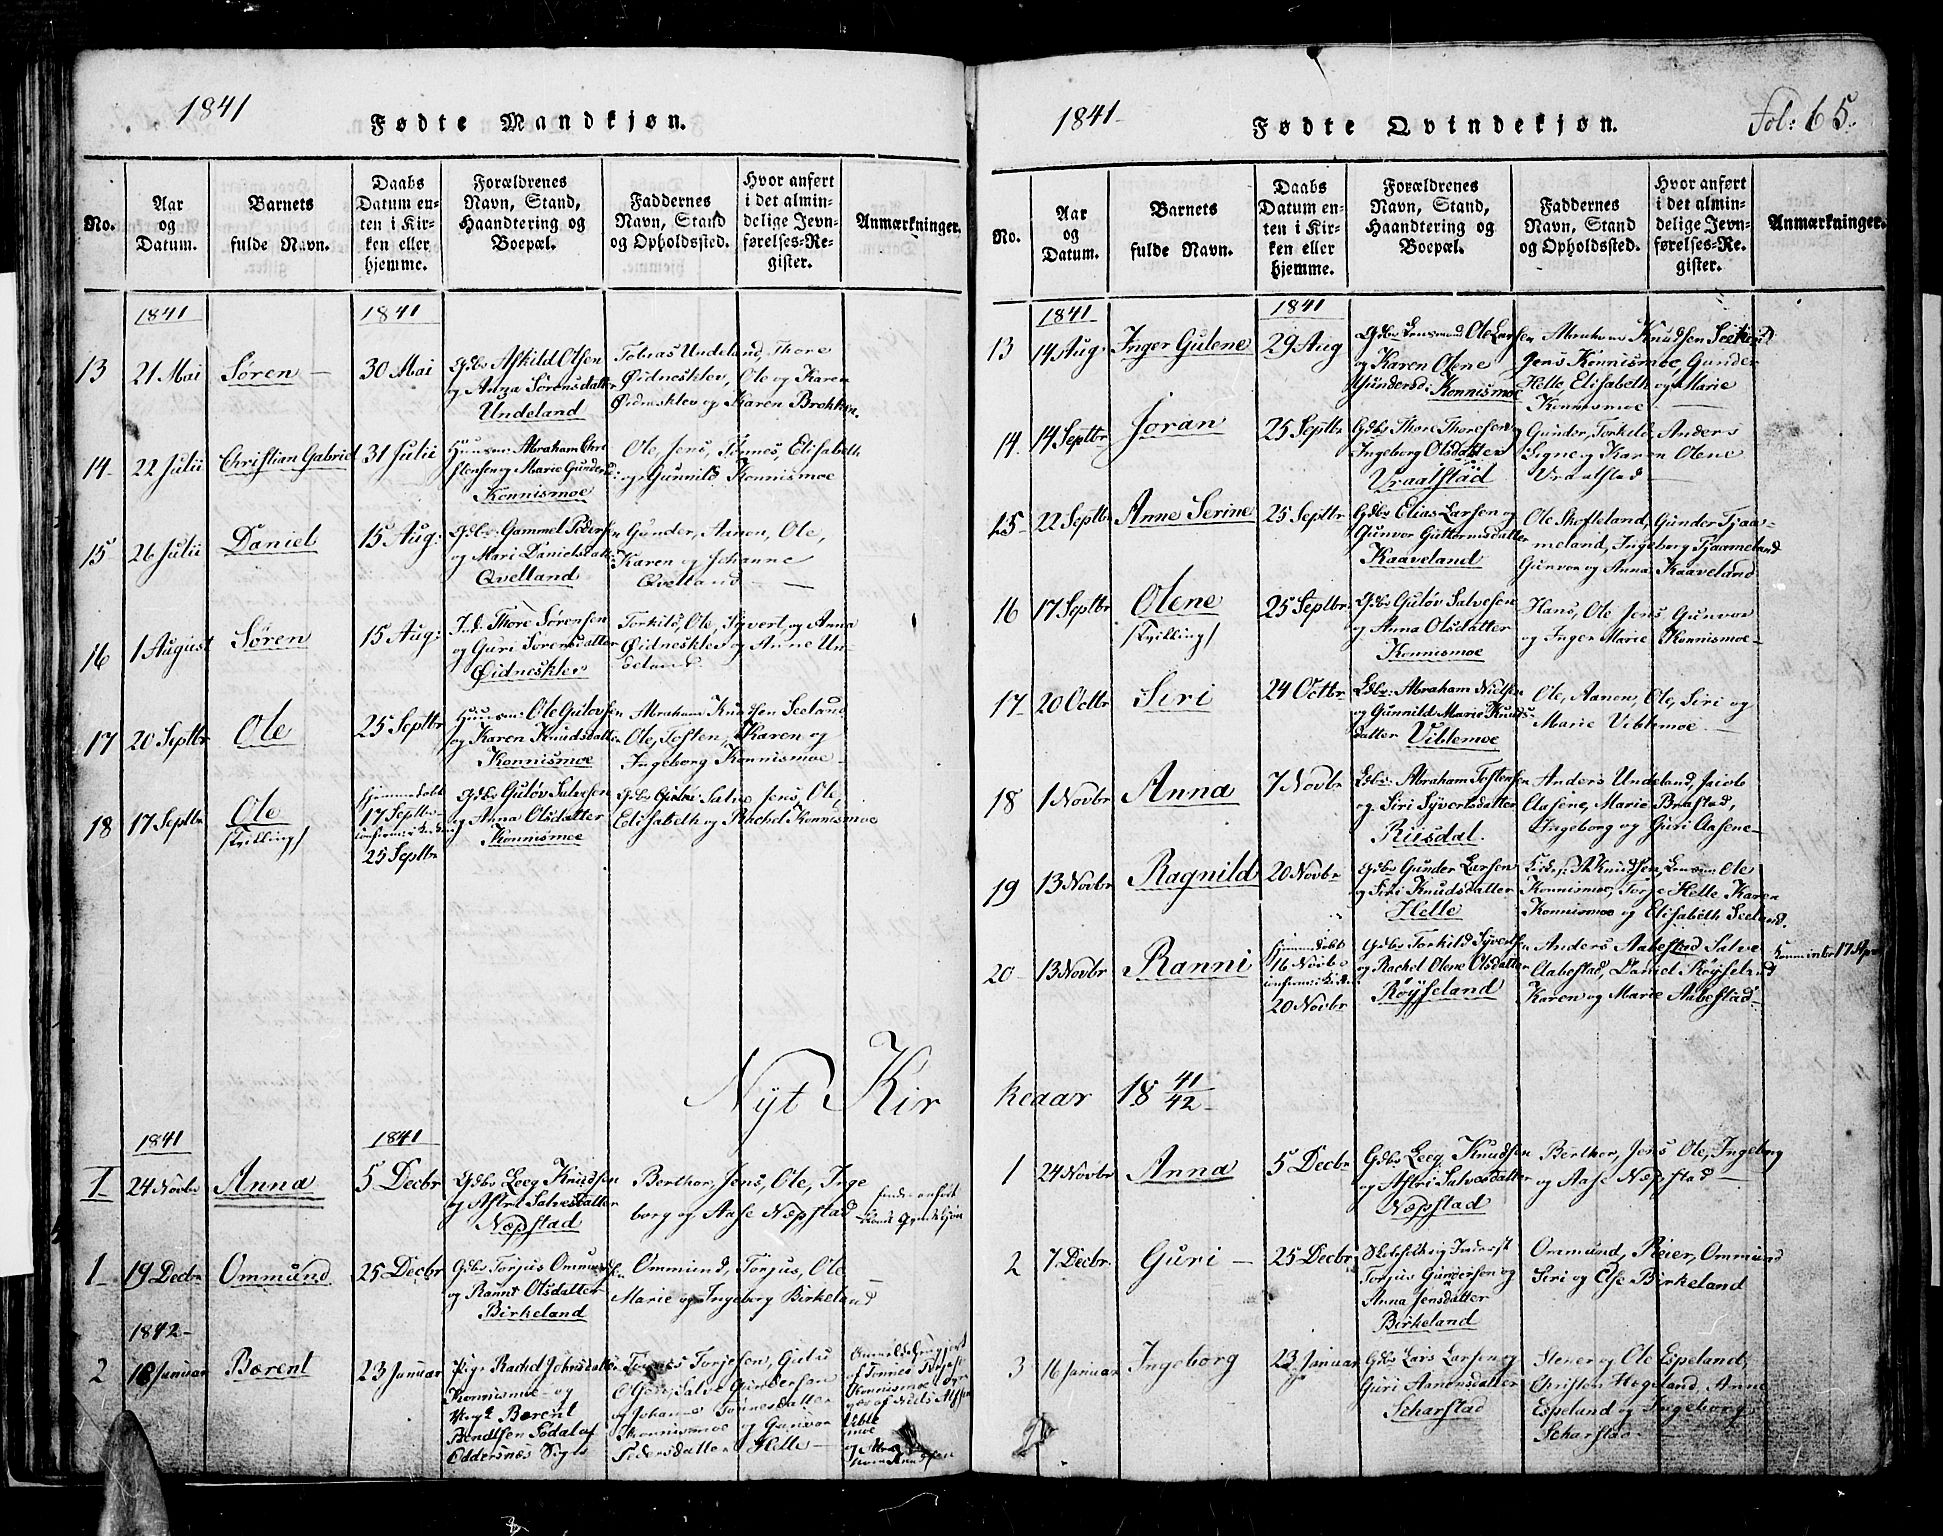 1841
Fødte Mandkjøn.
No.
Aar
og
Datum.
Barnets
fulde Navn.
Daabs
Datum en-
ten i Kir-
ken eller
hjemme.
Forældrenes
Navn, Stand,
Haandtering og
Boepæl.
Faddernes
Navn, Stand
og Opholdssted.
Hvor anført
i det almin-
delige Jevn-
førelses-Re-
gister.
Anmærkninger.
1841
1841
13
21 Mai
Søren
30 Mai
Gdbr Askild Olsen
og Anna Sørensdatter
Undeland
Tobias Undeland, Thore
Øidneskley, Ole og Karen
Øidneskley og Karen Brokken.
14
22 Julii
Christian Gabriel
31 Julii
Huusm: Abraham Chri
stensen og Marie Gunders
Konnismoe
Ole, Jens, Tønnes, Elisabeth
og Gunnild Konnismoe
15
26 Julii
Daniel
15 Aug:
Gdbr Gammel Pedersen
og Mari Danielsdatt:
Qvelland
Gunder, Aanon, Ole,
Karen og Johanne
Qvelland
16
1 August
Søren
15 Aug:
Ind: Thore Sørensen
og Guri Sørensdatter
Øidneskley
Torkild, Ole, Syvert, og Anna
Øidneskley og Anne Un-
deland
17
20 Septbr
Ole
25 Septbr
Huusm: Ole Guløvsen
og Karen Knudsdatter
Konnismoe
Abraham Knudsen Seeland
Ole, Tosten, Karen og
Ingeborg Konnismoe
18
17 Septbr
Ole
/Tvilling/
hjemmedøbt
17 Septbr
25 Septbr
Gdbr Guløv Salvesen
og Anna Olsdatter
Konnismoe
Salve Jens, Ole,
Elisabeth og Rachel Konnismoe
Nyt Kir
1841
1841
1
24 Novbr
Anna
5 Decbr
Gdbr Leeg Knudsen
og Astri Salvesdatter
Næpstad
Berthor, Jens, Ole, Inge
borg og Aase Næpstad
1
19 Decbr
Ommund
25 Decbr
Gdbr Torjus Ommundsen
og Ranni Olsdatter
Birkeland
Ommund, Torjus, Ole
Marie og Ingeborg Birkeland
1842
2
18 Januar
Bærent
23 Januar
Pige Rachel Johnsdatter
Konnismoe og
Bærent
Bendtsen Sødal af
Oddernæs Sogn
Tønnes Torjesen,
Salve Gundersen
og Johanne Tønnesdatter
Konnismoe og Gunvor
Pedersdatter Helle
1841
Fødte Qvindekjøn.
Fol: 65.
No.
Aar
og
Datum.
Barnets
fulde Navn.
Daabs
Datum en-
ten i Kir-
ken eller
hjemme.
Forældrenes
Navn, Stand,
Haandtering og
Boepæl.
Faddernes
Navn, Stand
og Opholdssted.
Hvor anført
i det almin-
delige Jevn-
førelses-Re-
gister.
Anmærkninger.
1841
1841
13
14 Aug:
Inger Gulene
29 Aug
Gdbr Lensmand Ole Larsen
og Karen Olene
Gundersd: Konnismoe
Abraham Knudsen Seeland
Jens Konnismoe, Gunder
Helle Elisabeth og Marie
Konnismoe
14
14 Septbr
Joran
25 Septbr
Gdbr Thore Thoresen og
Ingeborg Olsdatter
Vraalstad
Gunder, Torkild, Anders
Signe og Karen Olene
Vraalstad
15
22 Septbr
Anne Serine
25 Septbr
Gdbr Elias Larsen og
Gunvor Guttormsdatter
Kaaveland
Ole Skofteland, Gunder Tjaa-
meland, Ingeborg Tjaameland
Gunvor og Anna Kaaveland
16
17 Septbr
Olene
/Tvilling/
25 Septbr
Gdbr Guløv Salvesen
og Anna Olsdatter
Konnismoe
Hans, Ole Jens Gunvor
og Inger Marie Konnismoe
17
20 Octbr
Siri
24 Octbr
Gdbr: Abraham Nielsen
og Gunnild Marie Knuds-
datter Viblemoe
Ole, Aanon, Ole, Siri og
Marie Viblemoe
18
1 Novbr
Anna
7 Novbr
Gdbr: Abraham Tostensen
og Siri Syvertsdatter
Riisdal.
Anders Undeland, Jacob
Aasene, Marie Brastad,
Ingeborg og Guri Aasene
19
13 Novbr
Ragnild
20 Novbr
Gdbr Gunder Larsen
og Siri Knudsdatter
Helle
Knudsen, Ole
Konnismoe, Torje Helle Karen
Konnismoe og Elisabeth Seeland.
20
13 Novbr
Ranni
hjemmedøbt
16 Novbr
20 Novbr
Gdbr Torkild Syvertsen
og Rachel Olene Olsdatter
Røyseland
Anders Aabestad Salve
Aabestad, Daniel Røyseland
Karen og Marie Aabestad
keaar 18 41/42
1
24 Novbr
Anna
5 Decbr
Gdbr Leeg Knudsen
og Astri Salvesdatter
Næpstad
Berthor, Jens Ole, Ingeborg
og Aase Næpstad
2
7 Decbr
Guri
25 Decbr
Torjus Gundersen og
Anna Jensdatter
Birkeland
Ommund, Reier, Ommund
Siri og Ase Birkeland
3
16 Januar
Ingeborg
23 Januar
Gdbr Lars Larsen og
Guri Aanonsdatter
Scharstad
Stener og Ole Espeland,
Christen Høgeland, Anne
Espeland og Ingeborg
Scharstad